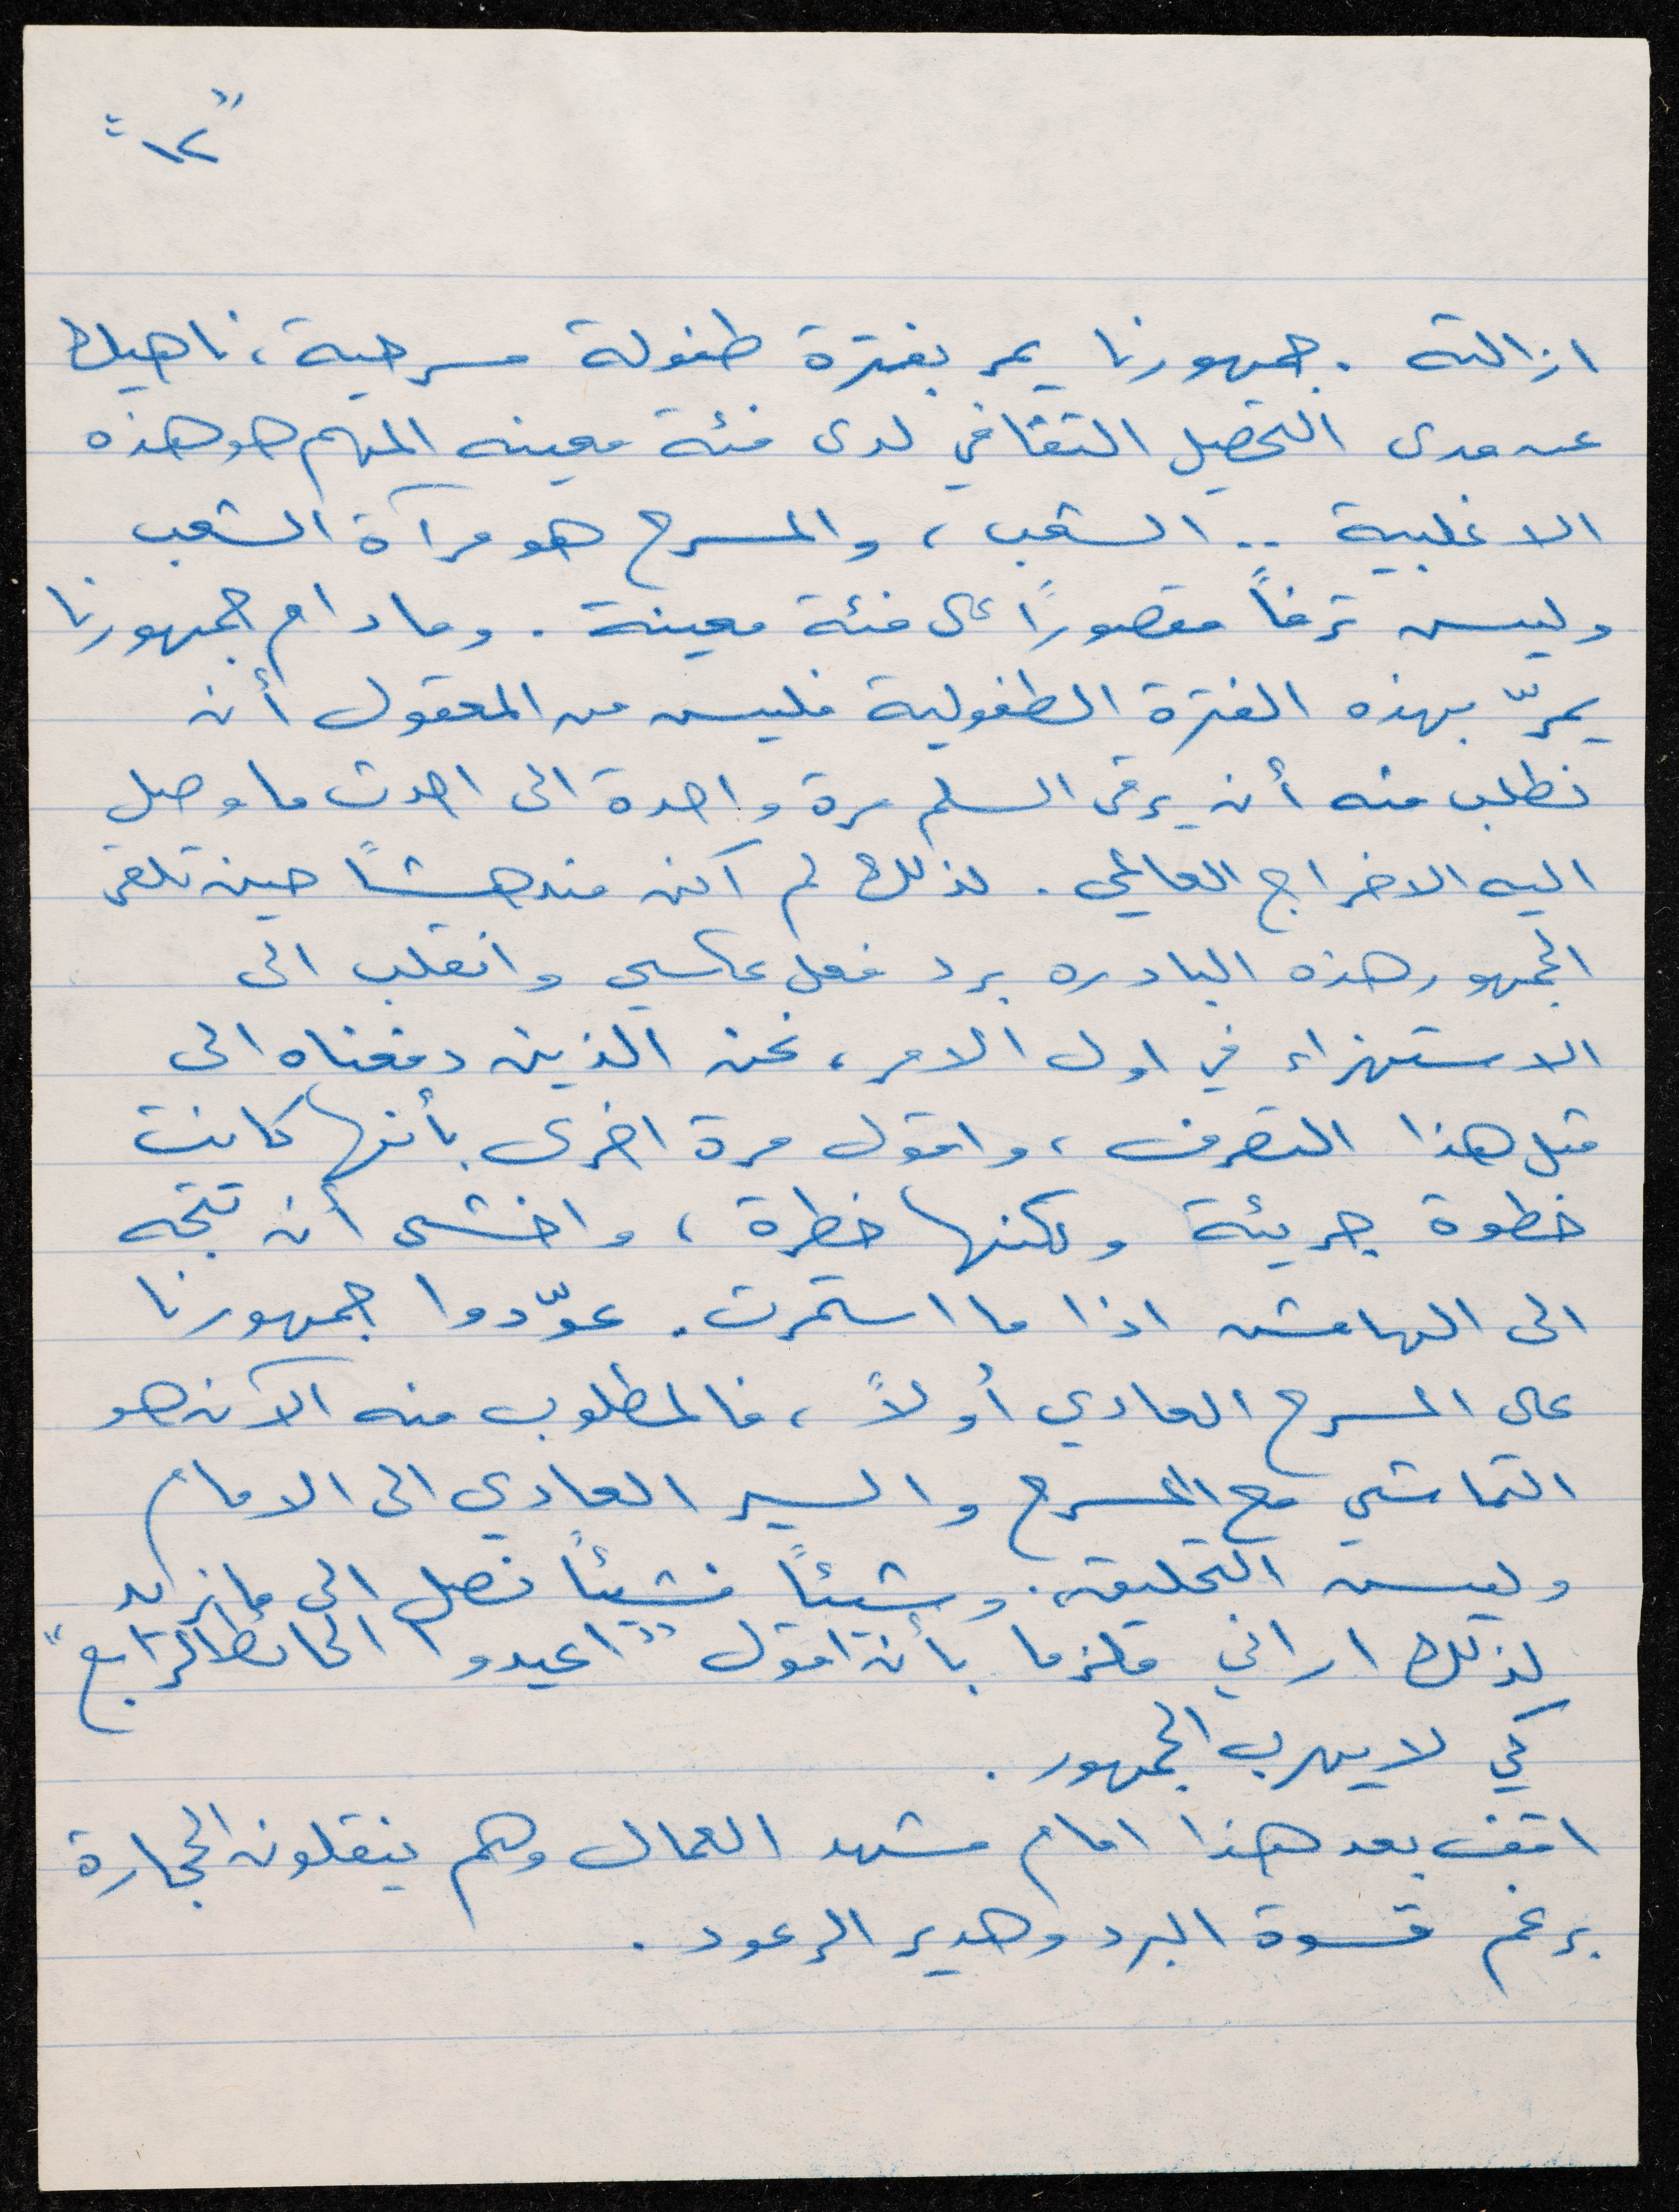 "١٢"
ازالته . جمهورنا يمر بفترة طفولة مسرحية ، ناهيك
عن مدى التحصيل الثقافي لدى فئة معينه المهم هو هذه
الاغلبية .. الشعب ، والمسرح هو مرآة الشعب
وليس ترفاً مقصوراً على فئة معينة . وما دام جمهورنا
يمرّ بهذه الفترة الطفولية فليس من المعقول أن
نطلب منه أن يرقى السلم مرة واحدة الى احدث ما وصل
اليه الاخراج العالمي . لذلك لم أكن مندهشاً حين تلقى
الجمهور هذه البادره برد فعل عكسي وانقلب الى
الاستهزاء في اول الامر ، نحن الذين دفعناه الى
مثل هذا التصرف ، واقول مرة اخرى بأنها كانت
خطوة جريئة ولكنها خطرة ، واخشى أن تتجه
الى الهامش اذا ما استمرت . عوّدوا جمهورنا
على المسرح العادي أولاً ، فالمطلوب منه الآن هو
التماشي مع المسرح والسير العادي الى الامام
وليس التحليق . وشيئاً فشيئاً نصل الى ما نريد
لذلك اراني ملزما بأن اقول "اعيدوا الحائط الرابع"
كي لا يهرب الجمهور .
اقف بعد هذا امام مشهد العمال وهم ينقلون الحجارة
برغم قسوة البرد وهدير الرعود .